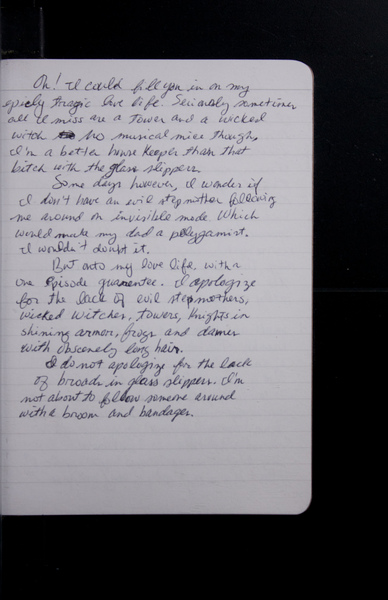 Oh! I could fill you in on my
epicly tragic love life. Seriously sometimes
all I miss are a tower and a wicked
witch no musical mice though,
I'm a better house keeper than that
bitch with the glass slippers.
Some days however, I wonder if
I don't have an evil stepmother following
me around on invisible mode. Which
would make my dad a polygamist.
I wouldn't doubt it.
But onto my love life. with a
one episode guarentee. I apologize
for the lack of evil stepmothers,
wicked witches, towers, knights in
shining armor, frogs and dames
with obscenely long hair.
I do not apologize for the lack
of broads in glass slippers. I'm
not about to follow someone around
with a broom and bandages.